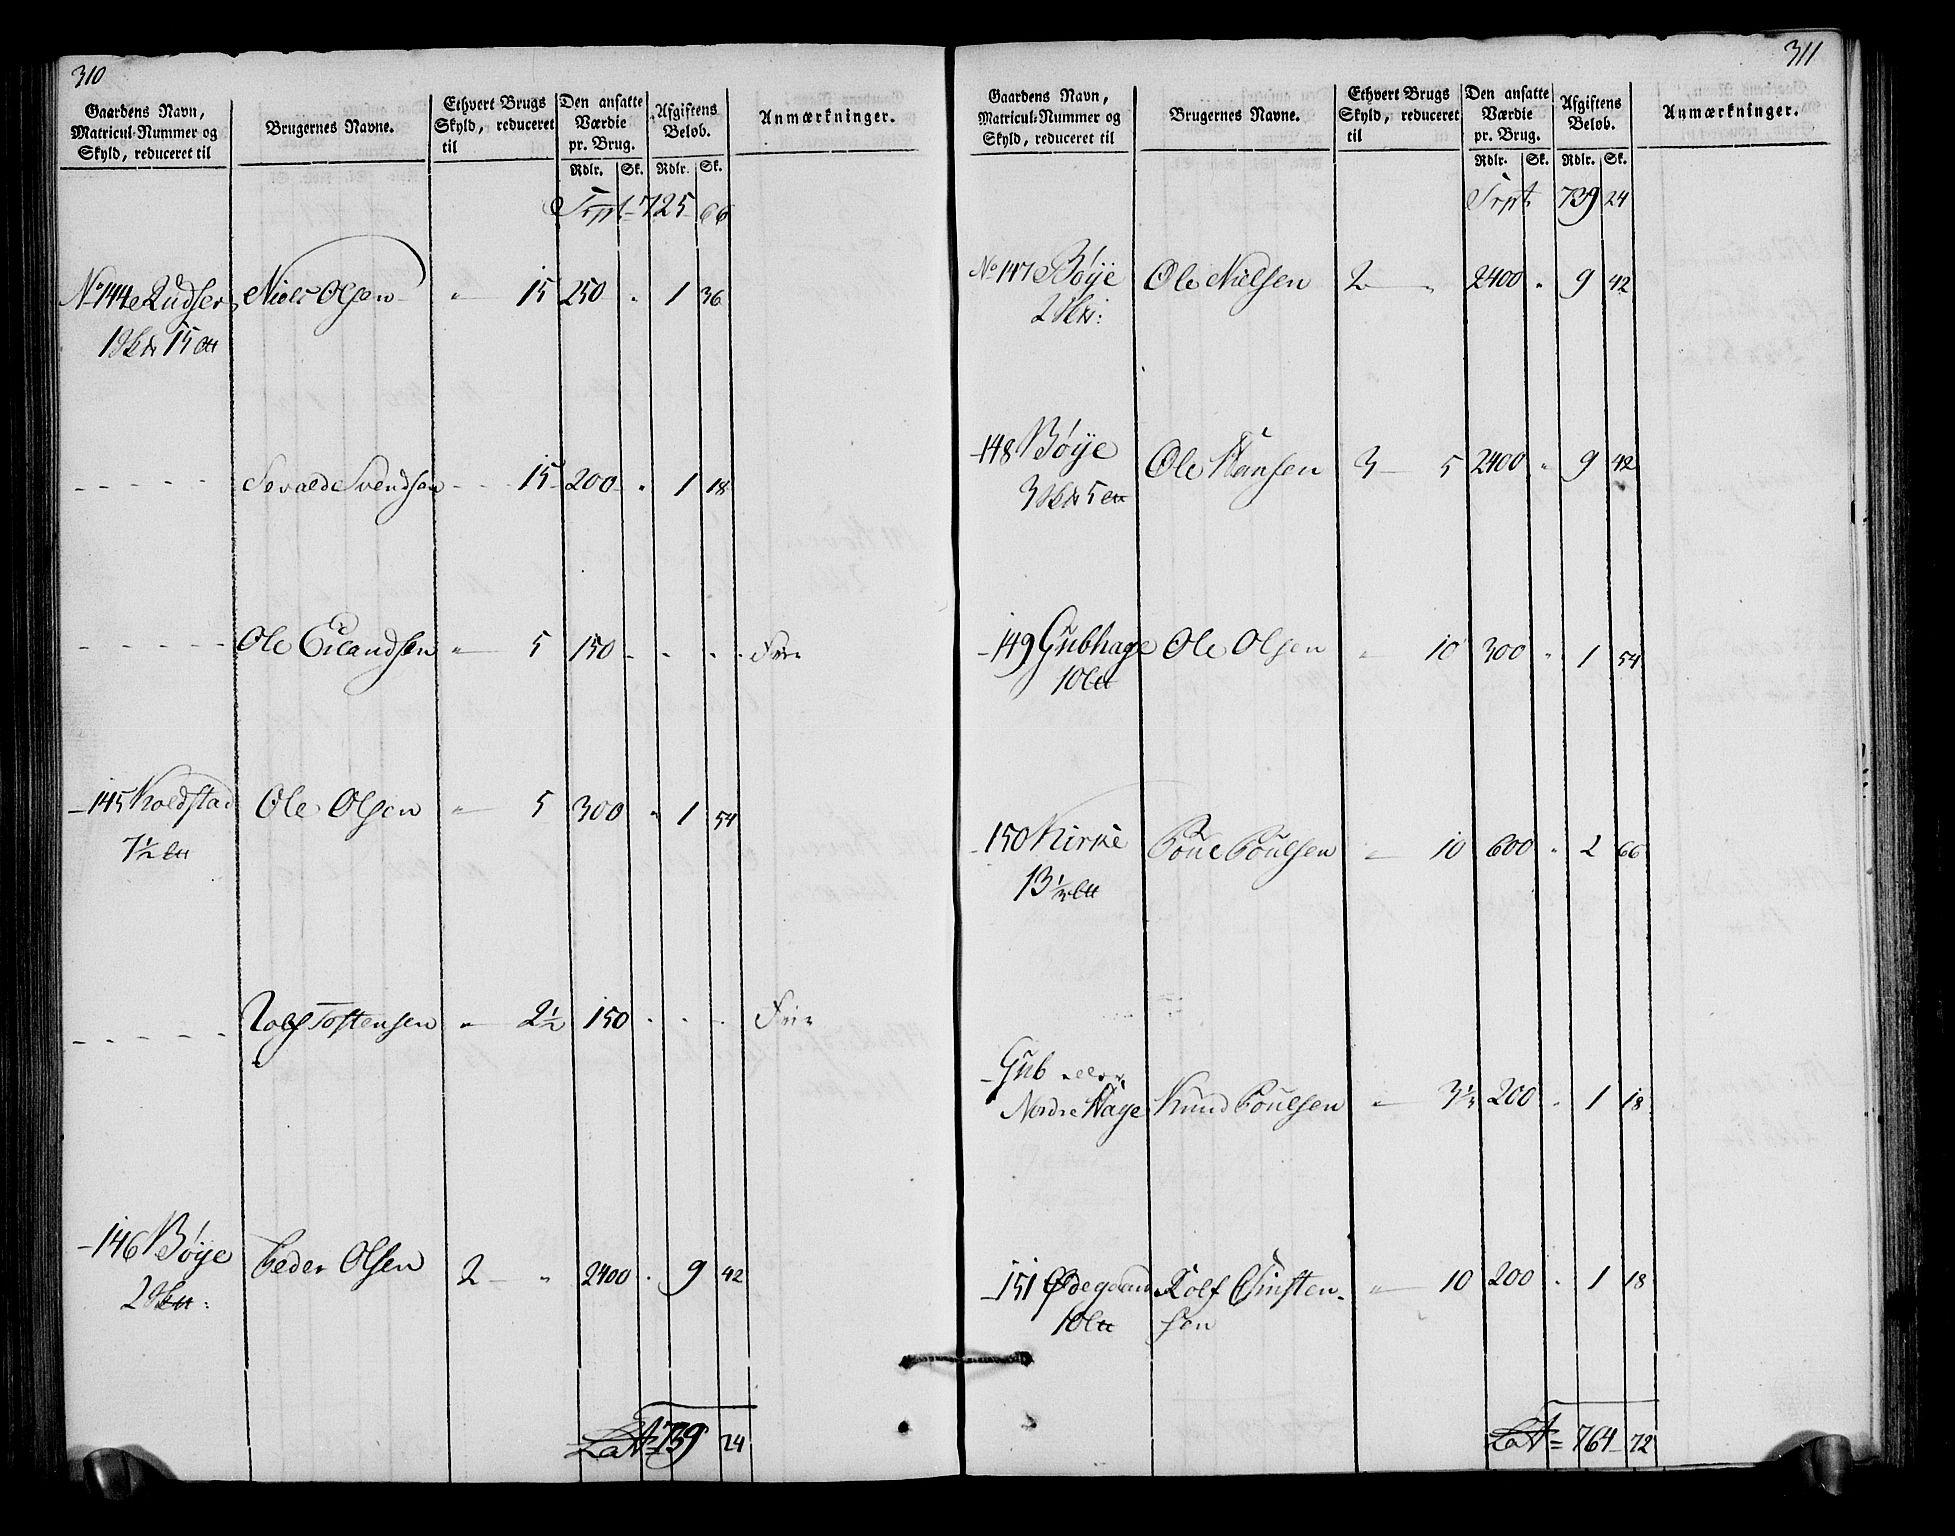 310
Gaardens Navn, Matricul-Nummer og Skyld, reduceret til | Brugernes Navne. | Ethvert Brugs Skyld, reduceret til | Den ansatte Værdie pr. Brug. Rdlr. Sk. | Afgiftens Beløb. Rdlr. Sk. | Anmærkninger.
Trpt 725 66
No 144 Rudser Niels Olsen " 15 250 " 1 36
1 Skp 15 ll
- - - - - Sevald Svendsen - - 15 200 " 1 18
- - - - - Ole Erlandsen " 5 150 - - - Frie
- 145 Koldstad Ole Olsen " 5 300 " 1 54
7½ ll
- - - - - Rolf Tostensen " 2½ 150 - - - Frie
- 146 Bøye Peder Olsen 2 - " 2400 " 9 42
2 Skp:
Lat = 739 24
311
Gaardens Navn, Matricul-Nummer og Skyld, reduceret til | Brugernes Navne. | Ethvert Brugs Skyld, reduceret til | Den ansatte Værdie pr. Brug. Rdlr. Sk. | Afgiftens Beløb. Rdlr. Sk. | Anmærkninger.
Trpt 739 24
No 147 Bøye Ole Nielsen 2 - " 2400 " 9 42
2 Skp:
- 148 Bøye Ole Hansen 3 - 5 2400 " 9 42
3 Skp 5 ll
- 149 Gubhage Ole Olsen " 10 300 " 1 54
10 ll
- 150 Kirke Poul Poulsen " 10 600 " 2 66
13⅓ ll
- Gub eller
Nordre Hage Knud Poulsen " 3⅓ 200 " 1 18
- 151 Ødegaard Rolf Christen- " 10 200 " 1 18
10 ll sen
Lat = 764 72